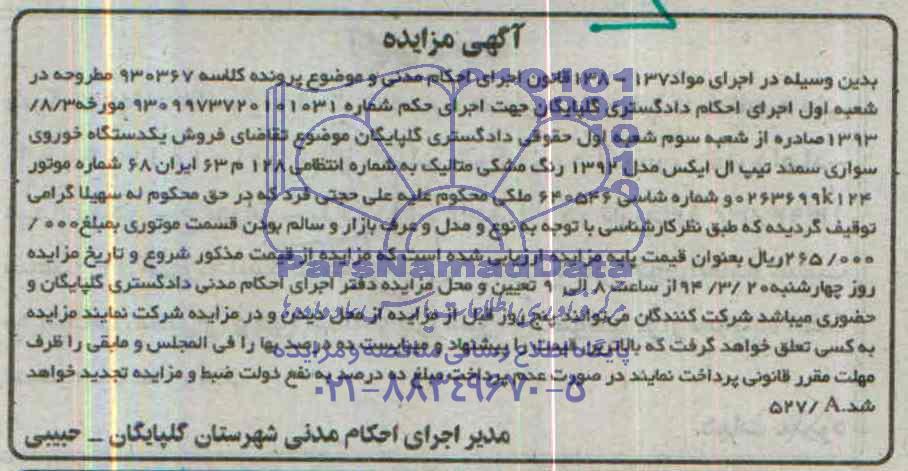 آگهی مزایده
بدین وسیله در اجرای مواد۱۳۷ – ۱۳۸قانون اجرای احکام مدنی و موضوع پرونده کلاسه ۹۳۰۳۶۷ مطروحه در
شعبه اول اجرای احکام دادگستری گلپایگان جهت اجرای حکم شماره ۹۳۰۹۹۷۳۷۲۰۱۰۱۰۳۱ مورخه۸/۳/
۱۳۹۳صادره از شعبه سوم شعبه اول حقوقی دادگستری گلپایگان موضوع تقاضای فروش یکدستگاه خوروی
سواری سمند تیپ ال ایکس مدل ۱۳۹۲ رنگ مشکی متالیک به شماره انتظامی ۱۲۸ م ۶۳ ایران ۶۸ شماره موتور
۰۲۶۳۶۹۹k۱۲۴ و شماره شاسی ۶۴۰۵۴۶ ملکی محکوم علیه علی حجتی فرد که در حق محکوم له سهیلا گرامی
توقیف گردیده که طبق نظرکارشناسی با توجه به نوع و مدل و عرف بازار و سالم بودن قسمت موتوری بمبلغ۰۰۰/
۲۶۵/۰۰۰ریال بعنوان قیمت پایه مزایده ارزیابی شده است که مزایده از قیمت مذکور شروع و تاریخ مزایده
روز چهارشنبه۹۴/۳/۲۰ از ساعت ۸ الی ۹ تعیین و محل مزایده دفتر اجرای احکام مدنی دادگستری گلپایگان و
حضوری میباشد شرکت کنندگان می‌توانند پنج روز قبل از مزایده از محل دیدن و در مزایده شرکت نمایند مزایده
به کسی تعلق خواهد گرفت که بالاترین قیمت را پیشنهاد و میبایست ده درصد بها را فی المجلس و مابقی را ظرف
مهلت مقرر قانونی پرداخت نمایند در صورت عدم پرداخت مبلغ ده درصد به نفع دولت ضبط و مزایده تجدید خواهد
شد.A /۵۲۷
مدیر اجرای احکام مدنی شهرستان گلپایگان – حبیبی
ParsNamadData
پایگاه اطلاع رسانی مناقصه و مزایده
۰۲۱-۸۸۳۴۹۶۷۰-۵